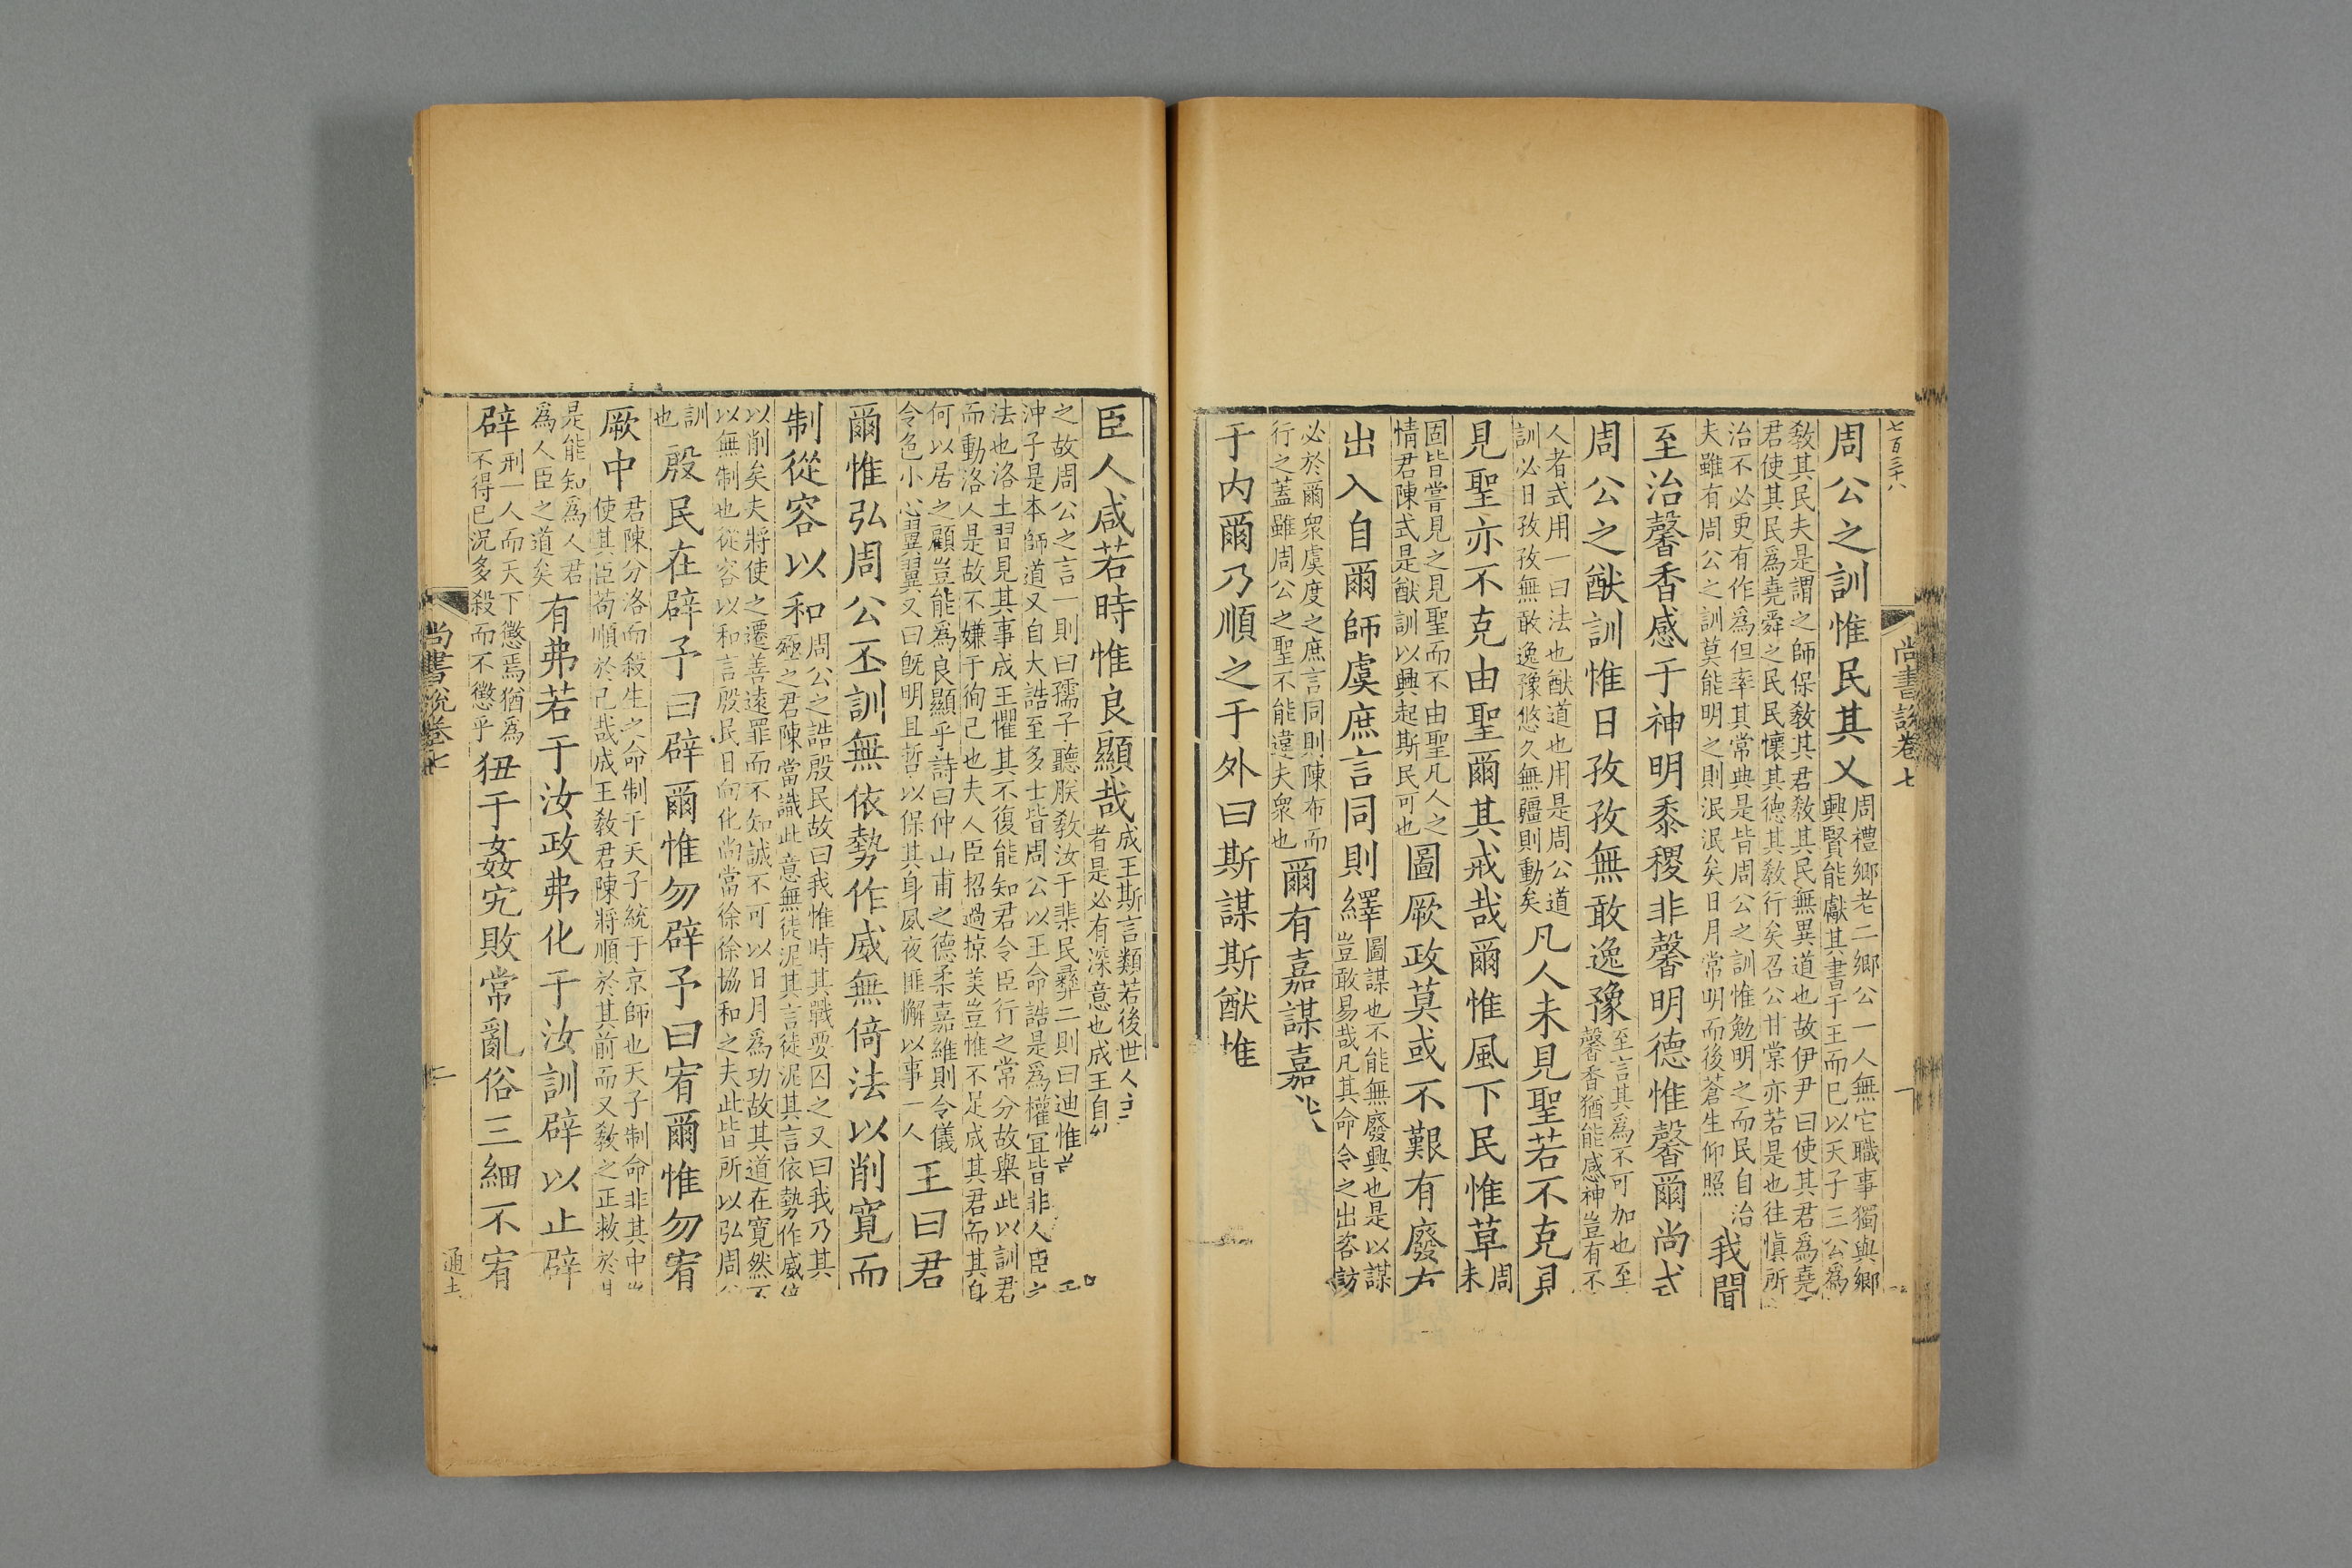 七百三十八
尚書說卷七
一
周公之訓惟民其乂周禮鄉老二鄉公一人無它職事獨與鄉
興賢能獻其書于王而已以天子三公爲
敎其民夫是謂之師保敎其君敎其民無異道也故伊尹曰使其君爲堯
君使其民爲堯舜之民民懷其德其敎行矣召公甘棠亦若是也往愼所
治不必更有作爲但率其常典是皆周公之訓惟勉明之而民自治
夫雖有周公之訓莫能明之則泯泯矣日月常明而後蒼生仰照我聞
至治馨香感于神明黍稷非馨明德惟馨爾尚式
周公之猷訓惟日孜孜無敢逸豫至言其爲不可加也至
馨香猶能感神豈有不
人者式用一曰法也猷道也用是周公道
訓必日孜孜無敢逸豫悠久無疆則動矣凡人未見聖若不克見
見聖亦不克由聖爾其戒哉爾惟風下民惟草周
未
固皆嘗見之見聖而不由聖凡人之
情君陳式是猷訓以興起斯民可也圖厥政莫或不艱有廢有
出入自爾師虞庶言同則繹圖謀也不能無廢興也是以謀
豈敢易哉凡其命令之出咨訪
必於爾衆虞度之庶言同則陳布而
行之蓋雖周公之聖不能違夫衆也爾有嘉謀嘉
于内爾乃順之于外曰斯謀斯猷惟
臣人咸若時惟良顯哉成王斯言類若後世人主
者是必有深意也成王自幼
之故周公之言一則曰孺子聽朕敎汝于棐民彝二則曰迪惟前
沖子是本師道又自大誥至多士皆周公以王命誥是爲權宜皆非人臣之
法也洛土習見其事成王懼其不復能知君令臣行之常分故舉此以訓君
而動洛人是故不嫌于徇己也夫人臣招過掠美豈惟不足成其君而其身
何以居之顧豈能爲良顯乎詩曰仲山甫之德柔嘉維則令儀
令色小心翼翼又曰旣明且哲以保其身夙夜匪懈以事一人王曰君
爾惟弘周公丕訓無依勢作威無倚法以削寬而
制從容以和周公之誥殷民故曰我惟時其戰要囚之又曰我乃其
殛之君陳當識此意無徒泥其言徒泥其言依勢作威倚
以削矣夫將使之遷善遠罪而不知誠不可以日月爲功故其道在寬然不
以無制也從容以和言殷民日向化尚當徐徐協和之夫此皆所以弘周公
訓
也殷民在辟予曰辟爾惟勿辟予曰宥爾惟勿宥
厥中君陳分洛而殺生之命制于天子統于京師也天子制命非其中
使其臣苟順於己哉成王敎君陳將順於其前而又敎之正救於
是能知爲人君
爲人臣之道矣有弗若于汝政弗化于汝訓辟以止辟
辟刑一人而天下懲焉猶爲
不得已況多殺而不懲乎狃于姦宄敗常亂俗三細不宥
尚書說卷七
二
通志